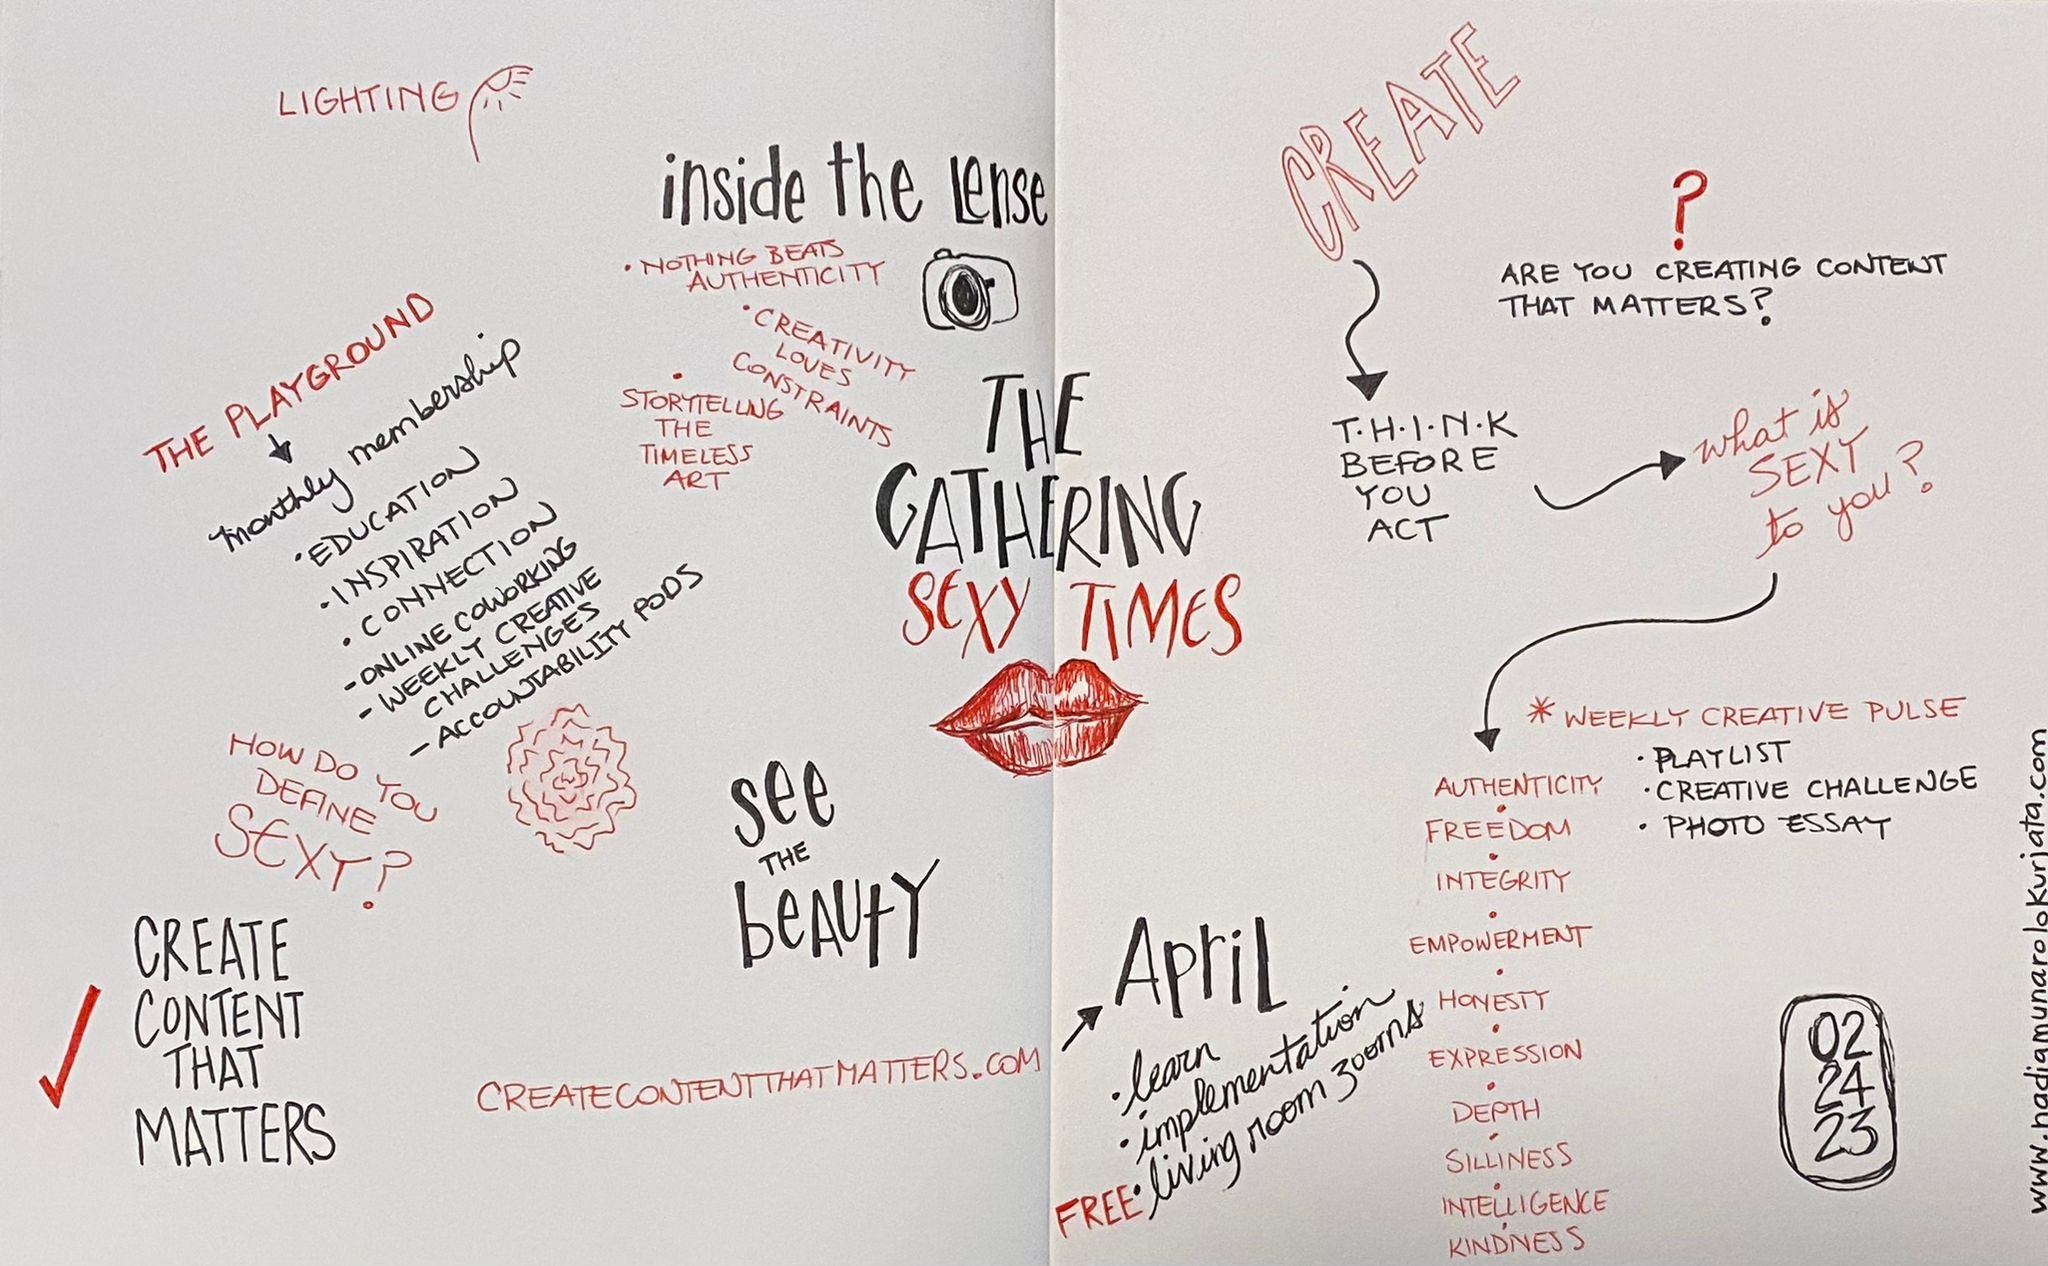 LIGHTING
inside the Lense
• NOTHING BEATS
AUTHENTICITY
• CREATIVITY
LOVES
CONSTRAINTS
• STORYTELLING
THE
TIMELESS
ART
THE PLAYGROUND
monthly membership
• EDUCATION
• INSPIRATION
• CONNECTION
- ONLINE COWORKING
- WEEKLY CREATIVE
CHALLENGES
- ACCOUNTABILITY PODS
HOW DO YOU
DEFINE
SEXY?
CREATE
CONTENT
THAT
MATTERS
see
THE
beAUtY
CREATECONTENTTHATMATTERS.COM
THE
GATHERING
SEXY TIMES
CREATE
?
ARE YOU CREATING CONTENT
THAT MATTERS?
T.H.I.N.K
BEFORE
YOU
ACT
what is
SEXY
to you?
* WEEKLY CREATIVE PULSE
• PLAYLIST
• CREATIVE CHALLENGE
• PHOTO ESSAY
AUTHENTICITY
FREEDOM
INTEGRITY
EMPOWERMENT
HONESTY
EXPRESSION
DEPTH
SILLINESS
INTELLIGENCE
KINDNESS
April
• learn
• implementation
FREE • living room zooms
02
24
23
www.nadiamunarolokurjata.com